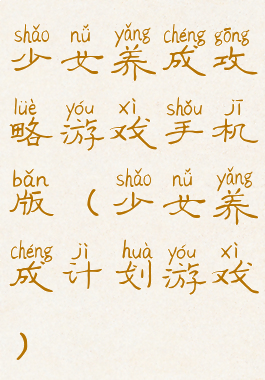 shǎo nǚ yǎng chéng gōng
少女养成攻
lüè yóu xì shǒu jī
略游戏手机
bǎn shǎo nǚ yǎng
版（少女养
chéng jì huà yóu xì
成计划游戏
）